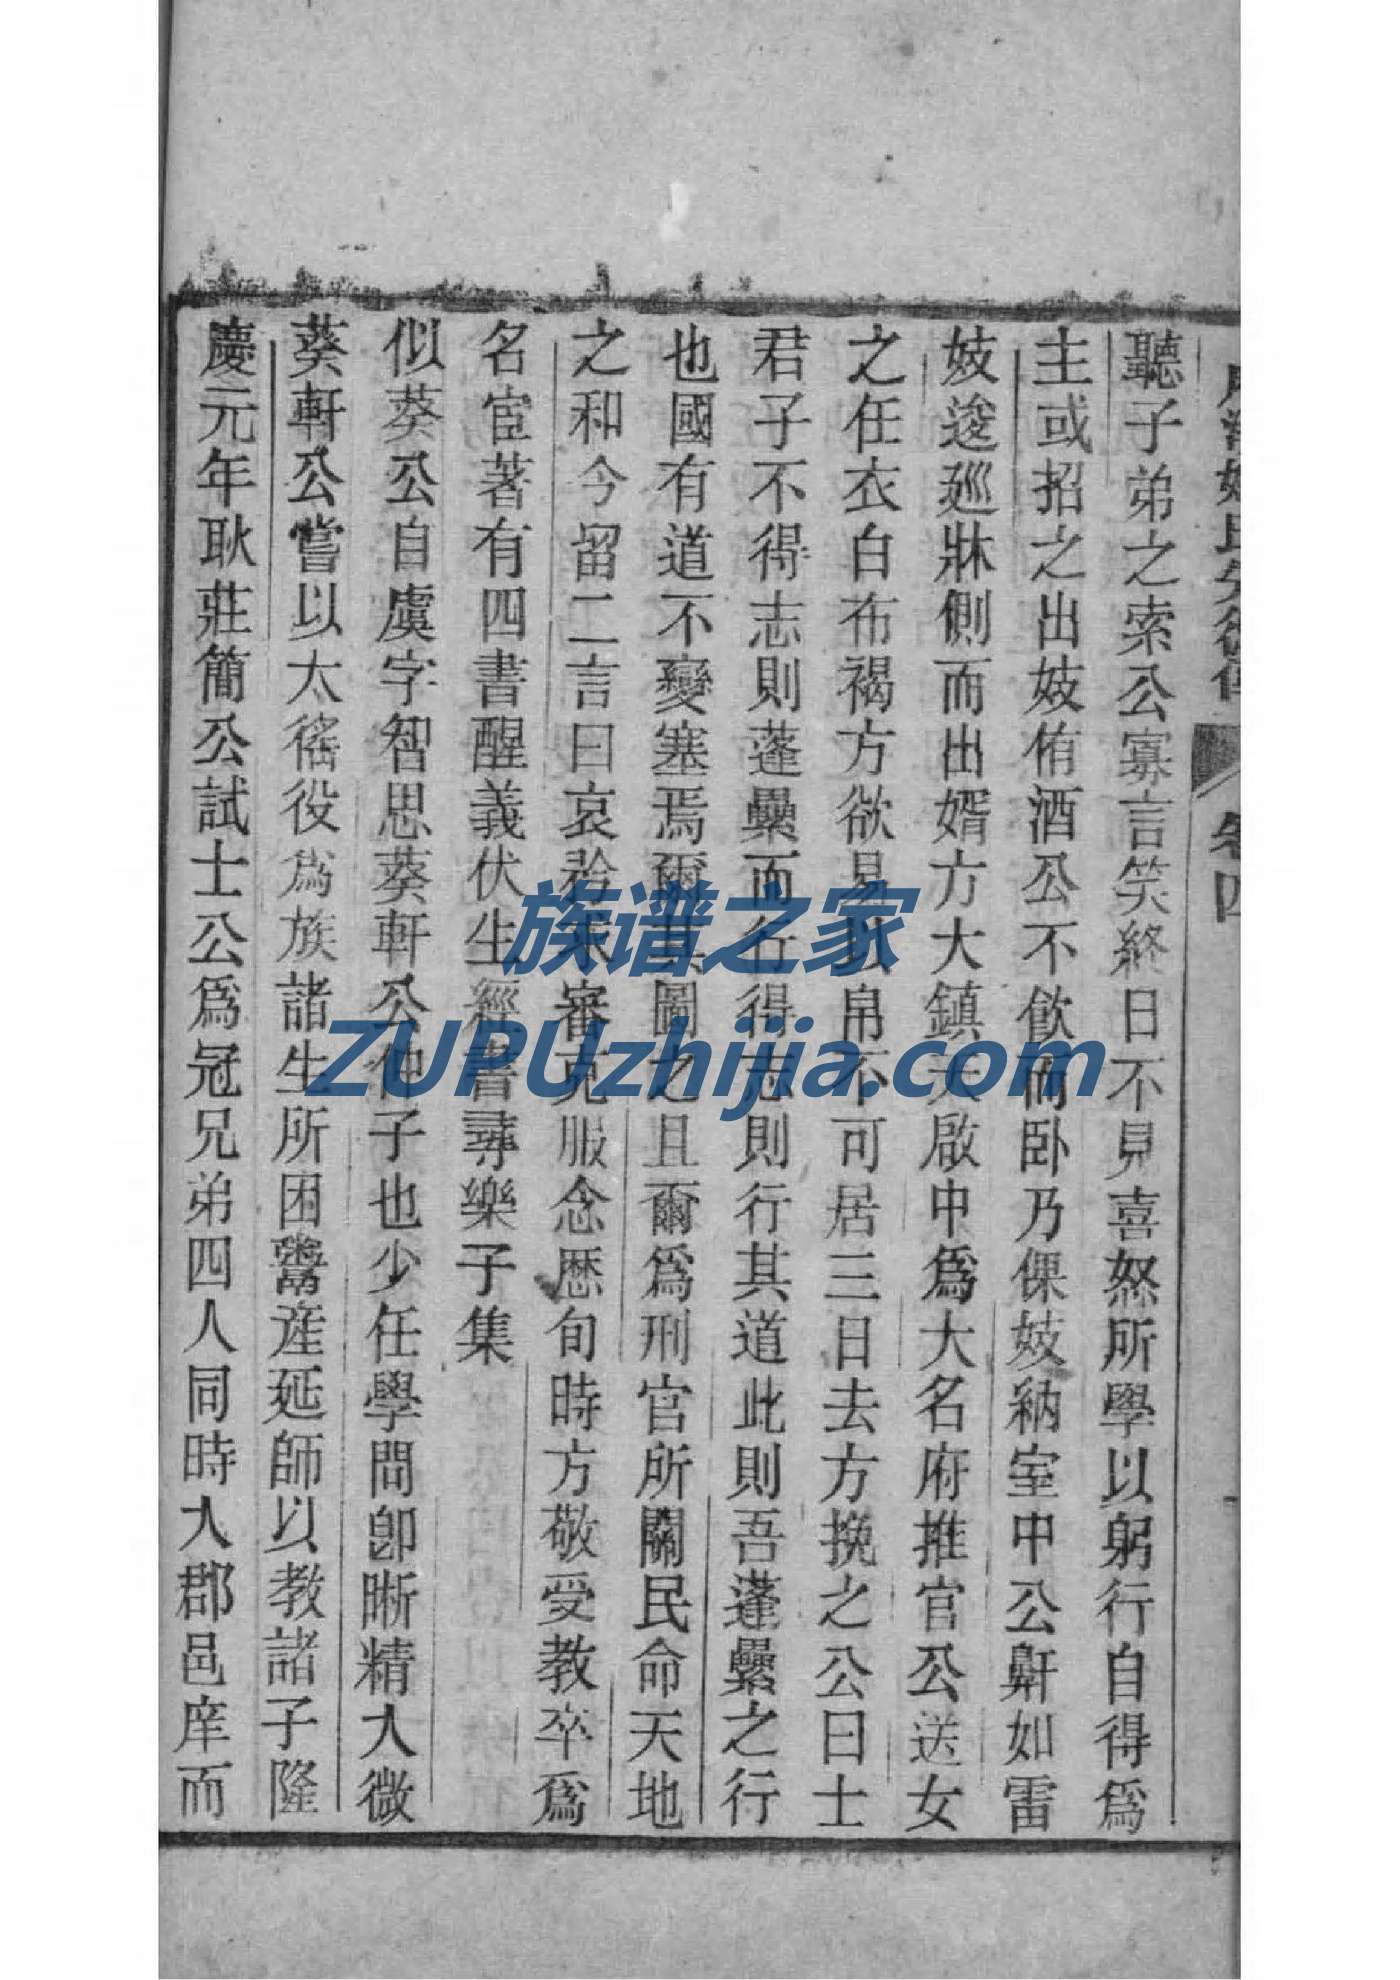 聽子弟之索公寡言笑終日不見喜怒所學以躬行自得爲
主或招之出妓侑酒公不飲而卧乃倮妓納室中公鼾如雷
妓逡廵牀側而出婿方大鎮天啟中爲大名府推官公送女
之任衣白布褐方欲易以帛不可居三日去方挽之公曰士
君子不得志則蓬纍而行得志則行其道此則吾蓬纍之行
也國有道不變塞焉爾其圖之且爾爲刑官所關民命天地
之和今留二言曰哀矜求審克服念歴旬時方敬受教卒爲
名宦著有四書醒義伏生經書尋樂子集
似葵公自虞字智思葵軒公仲子也少任學問卽晰精入微
葵軒公嘗以太徭役爲族諸生所困鬻産延師以教諸子隆
慶元年耿莊簡公試士公爲冠兄弟四人同時入郡邑庠而
卷四
族谱之家
ZUPUzhijia.com